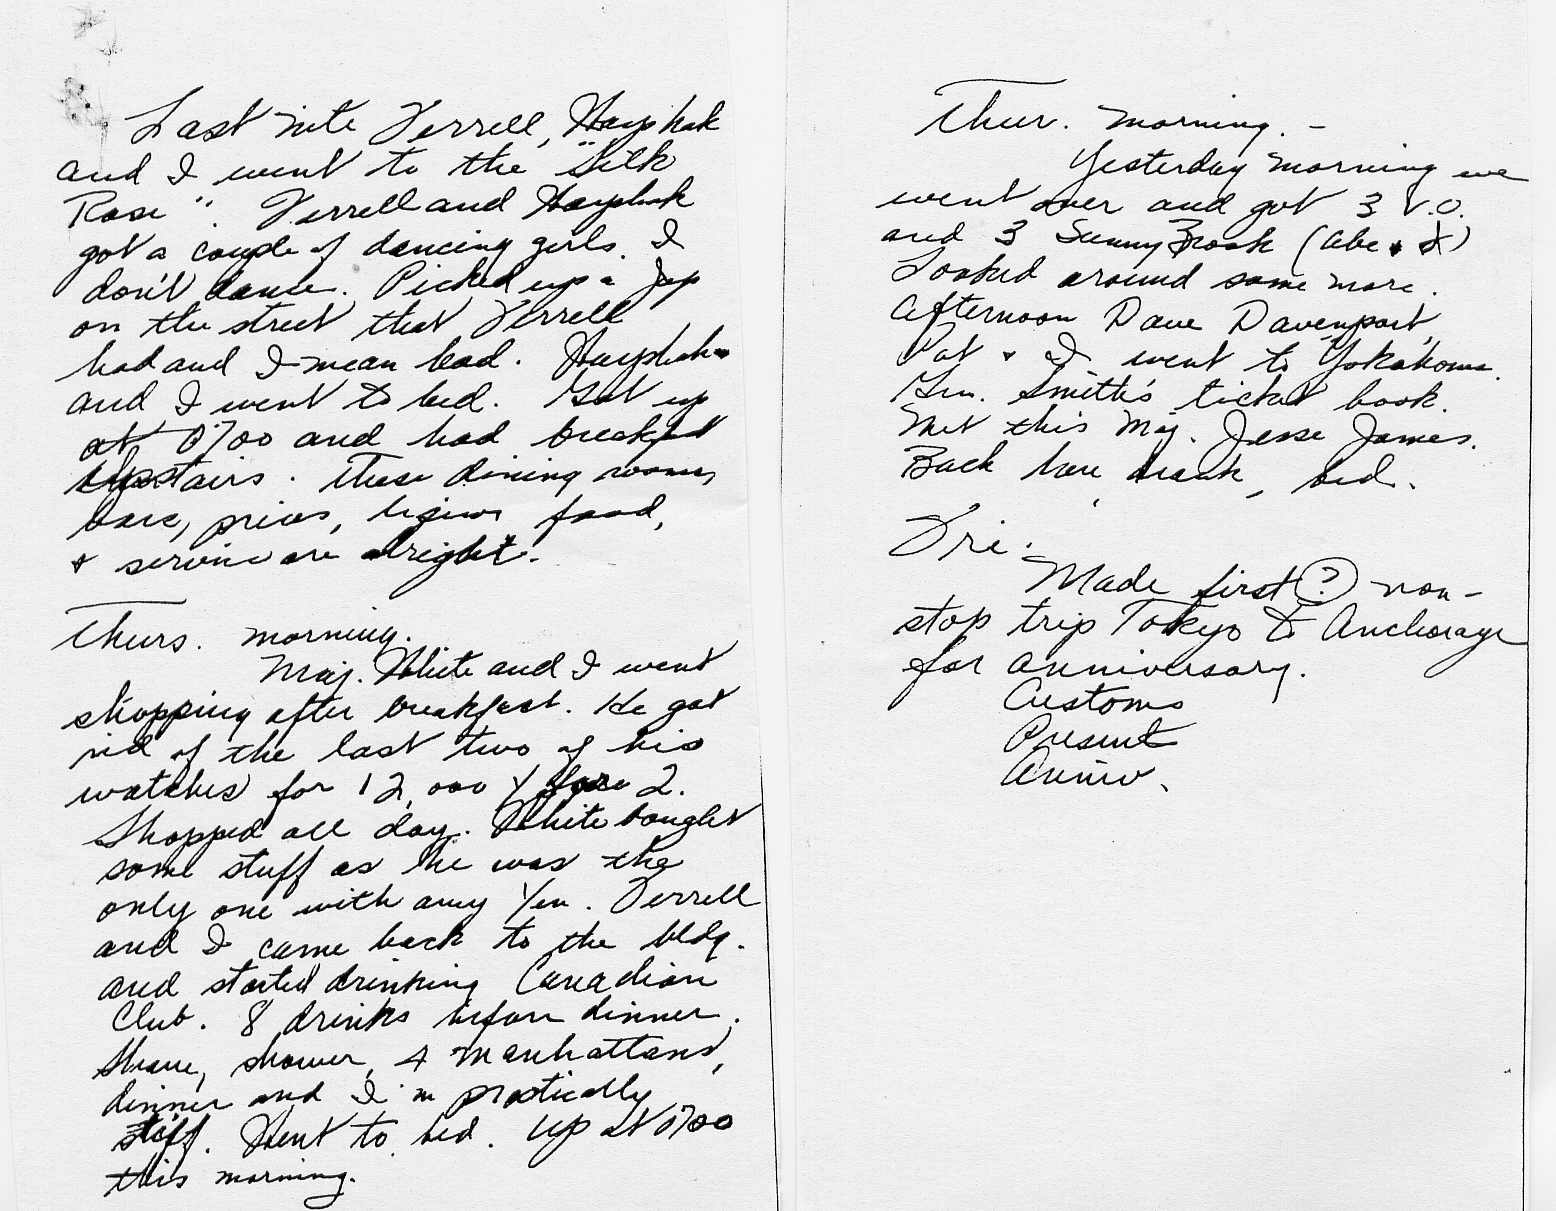 Last nite Ferrell, Hayshak
and I went to the "Silk
Rose". Ferrell and Hayshak
got a couple of dancing girls. I
don't dance. Picked up a Jap
on the street that Ferrell
had and I mean had. Hayshak
and I went to bed. Got up
at 0700 and had breakfast
upstairs. These dining rooms,
bars, prices, liquor food,
& service are alright.
Thurs. morning.
Maj. White and I went
shopping after breakfast. He got
rid of the last two of his
watches for 12,000 Y for 2.
Shopped all day. White bought
some stuff as he was the
only one with any Yen. Ferrell
and I came back to the bldg.
and started drinking Canadian
Club. 8 drinks before dinner.
Shave, shower, 4 Manhattans,
dinner and I'm practically
stiff. Went to bed. Up at 0700
this morning.
Thur. morning. -
Yesterday morning we
went over and got 3 V.O.
and 3 Sunny Brook (abc &)
Looked around some more.
Afternoon Dave Davenport,
Pat & I went to Yokahoma.
Gen. Smith's ticket book.
Met this Maj. Jesse James.
Back here drank, bed.
Fri.
Made first ? non-
stop trip Tokyo to Anchorage
for anniversary.
Customs
Present
Anniv.